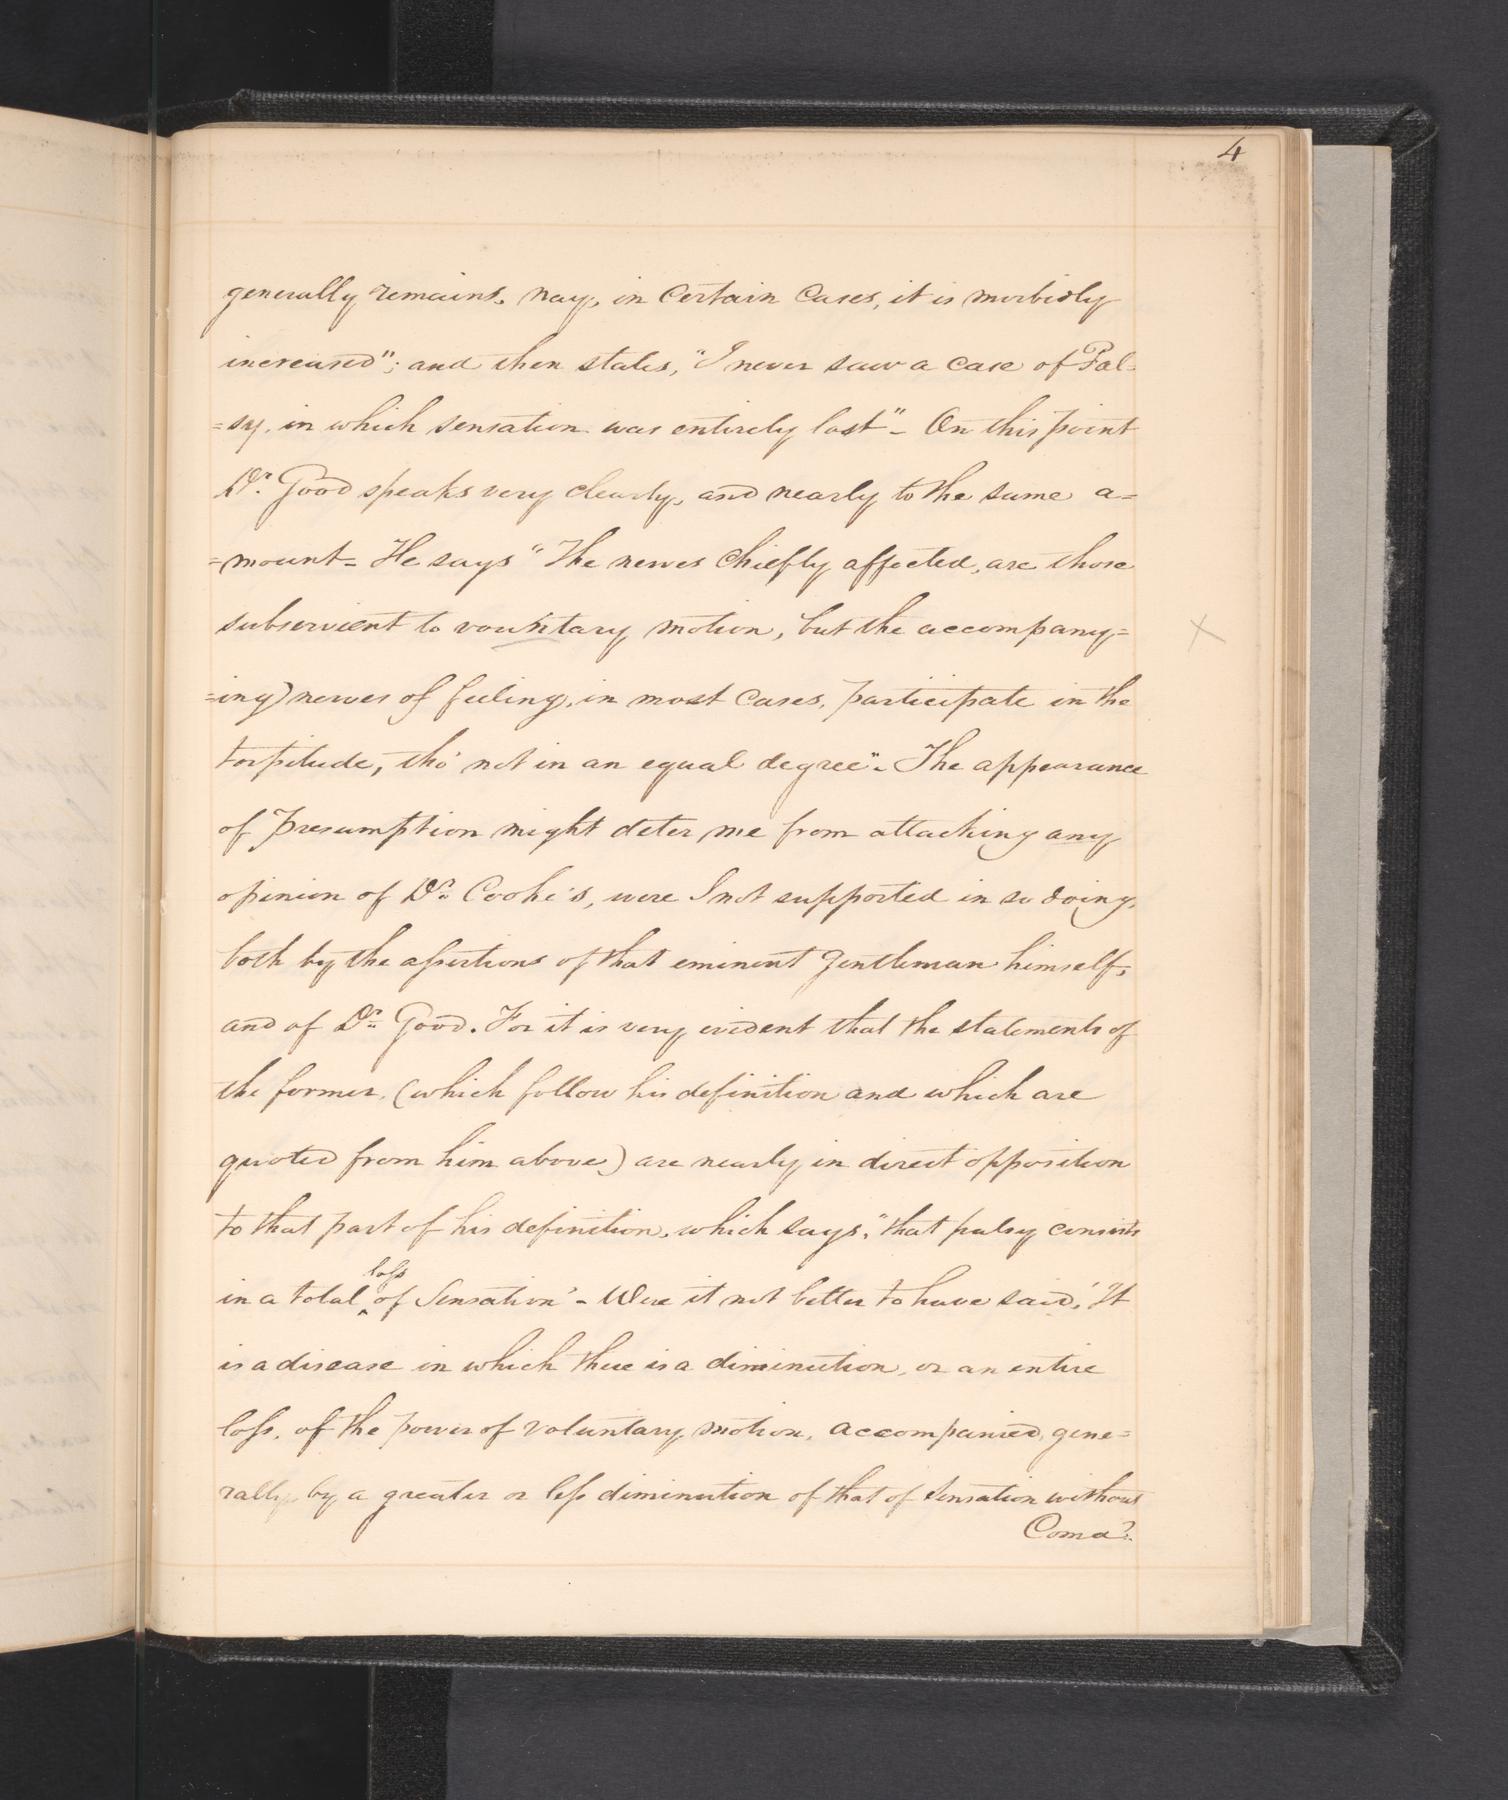 4
generally remains, nay, in certain Cases, it is morbidly
increased"; and then states, "I never saw a case of Pal-
=sy, in which sensation was entirely lost" - On this point
Dr. Good speaks very clearly, and nearly to the same a=
=mount - He says "The nerves chiefly affected, are those
subservient to vountary motion, but the accompany=
=ing nerves of feeling, in most cases, participate in the
torpitude, tho' not in an equal degree". The appearance
of Presumption might deter me from attacking any
opinion of Dr. Cooke's, were I not supported in so doing,
both by the assertions of that eminent Gentleman himself,
and of Dr. Good. For it is very evident that the statements of
the former, (which follow his definition and which are
quoted from him above) are nearly in direct opposition
to that part of his definition, which says, "that palsy consists
loss
in a total ‸ of Sensation" - Were it not better to have said, "It
is a disease in which there is a diminution, or an entire
loss, of the power of voluntary motion, accompanied, gene=
rally, by a greater or less diminution of that of Sensation without
Coma?"